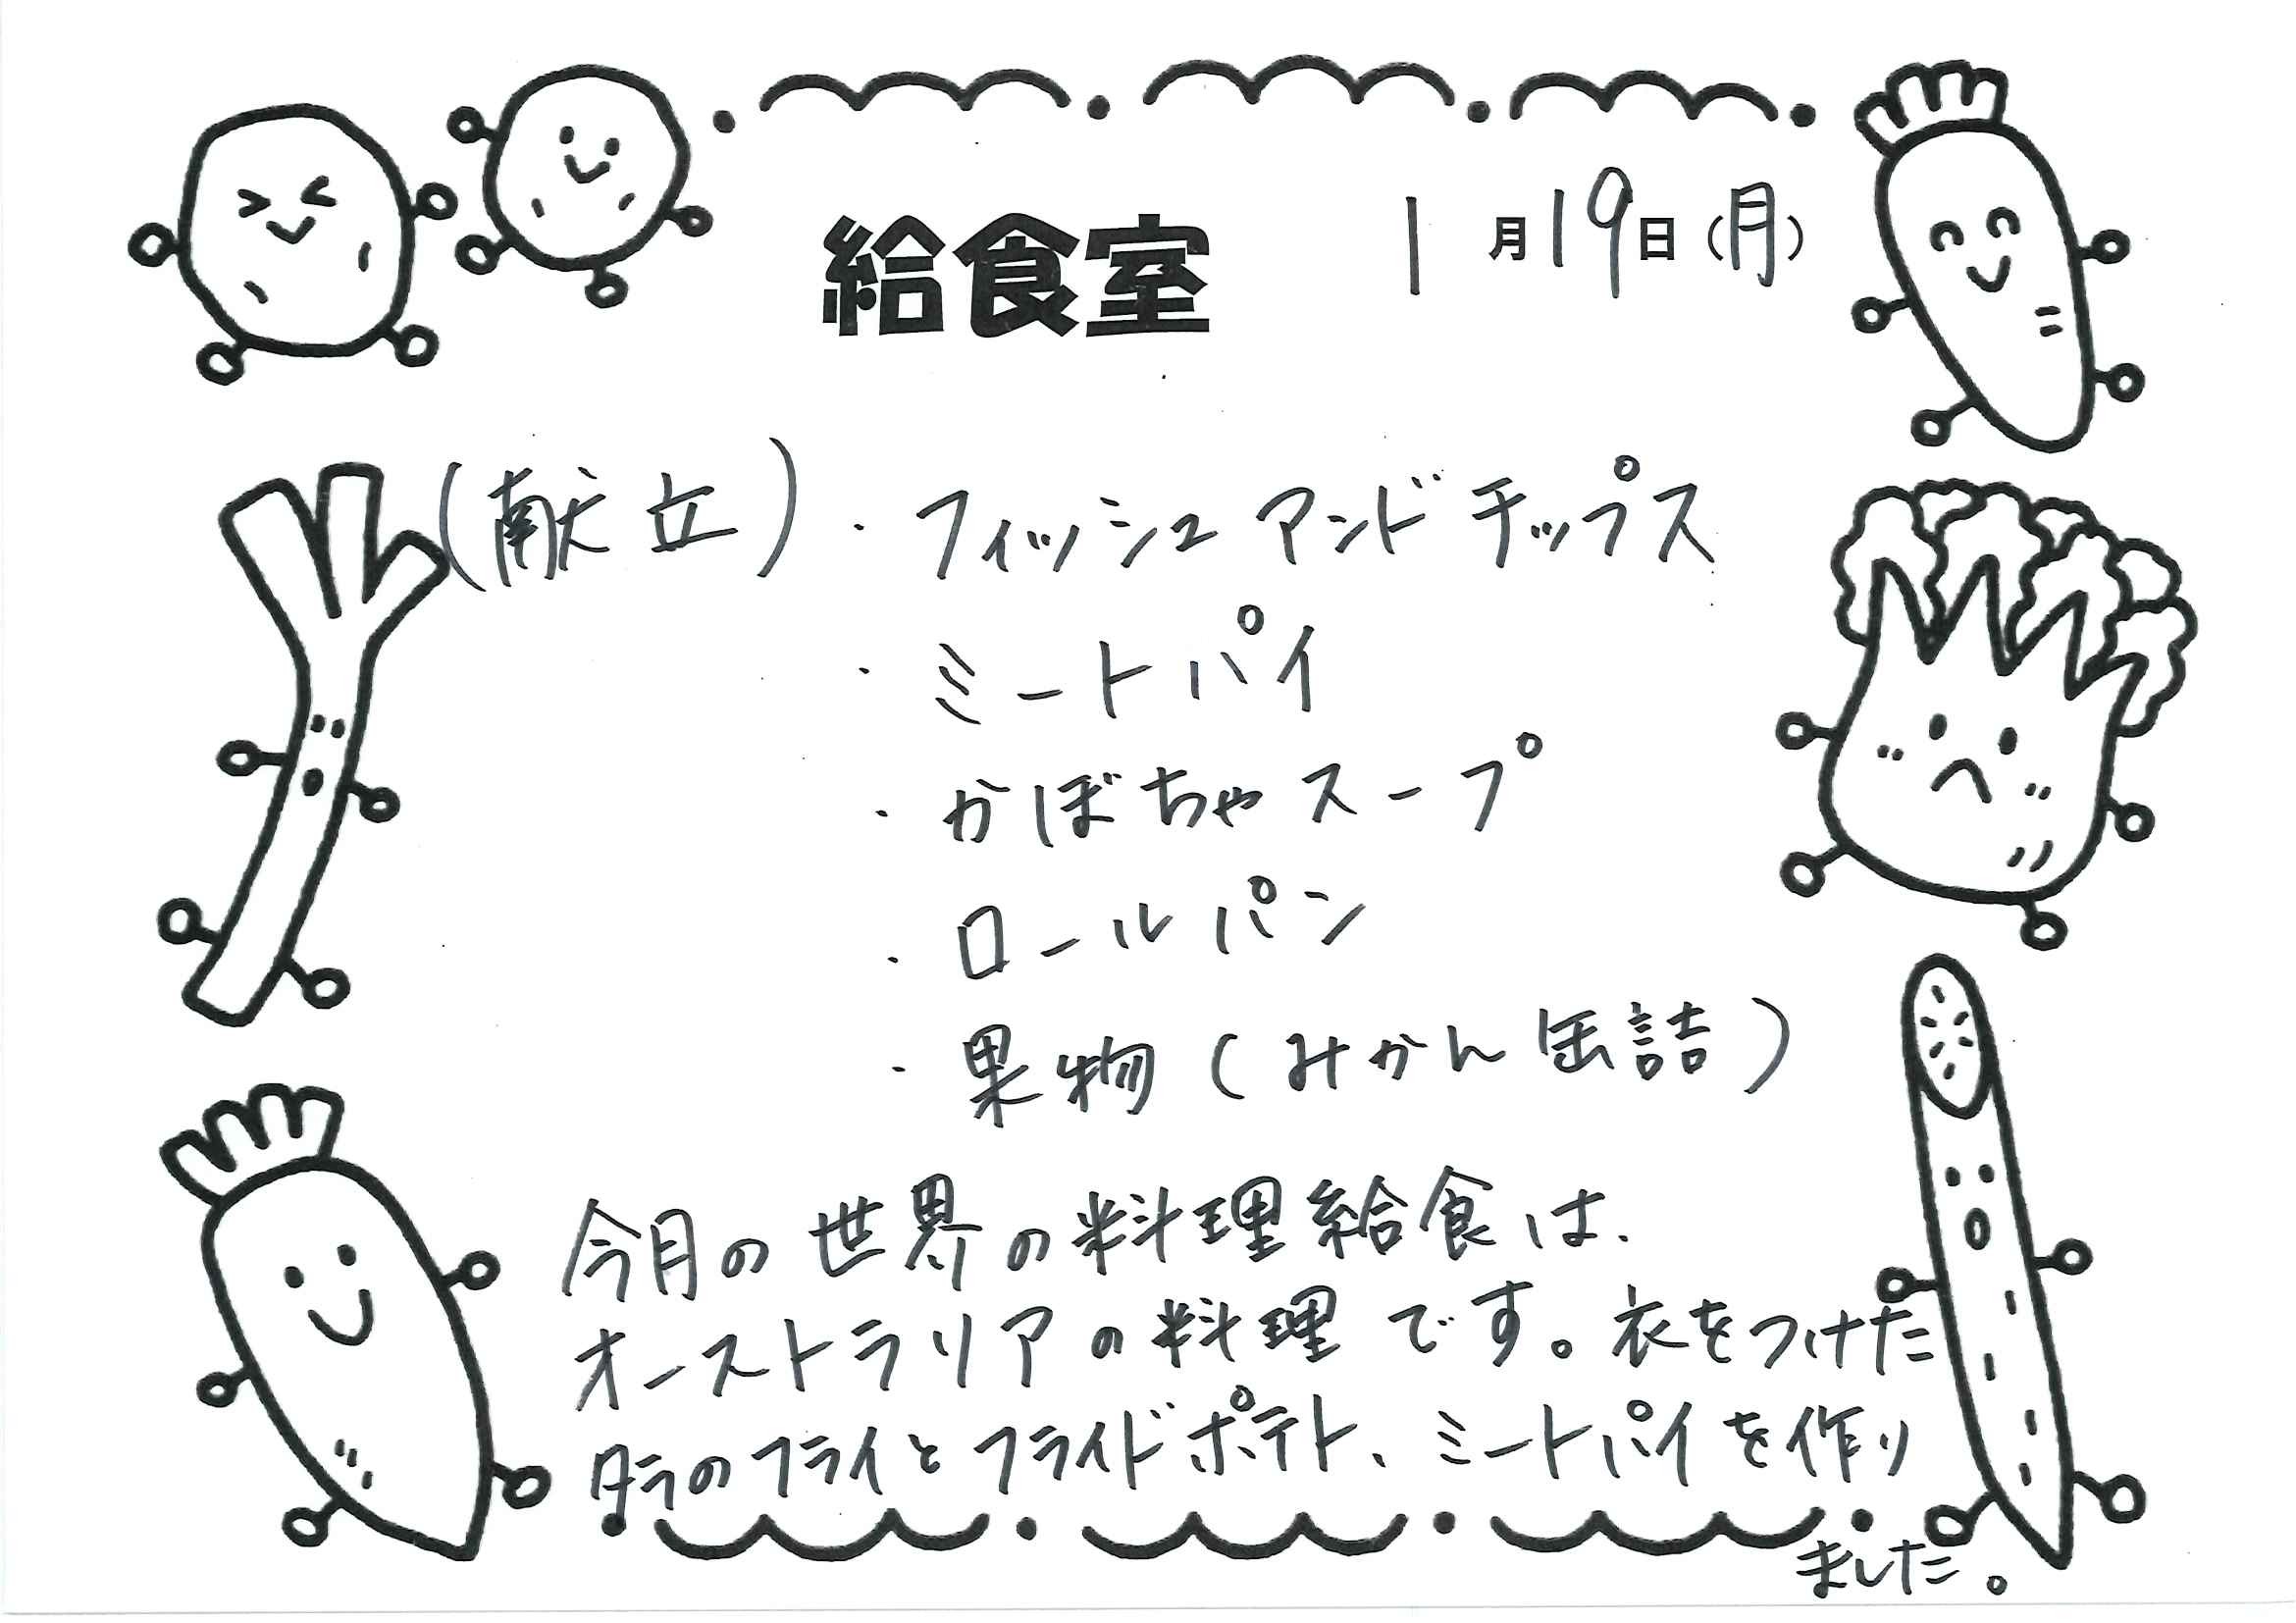 給食室
1月19日(月)
(献立)・フィッシュアンドチップス
・ミートパイ
・かぼちゃスープ
・ロールパン
・果物(みかん缶詰)
今月の世界の料理給食は、
オーストラリアの料理です。衣をつけた
タラのフライとフライドポテト、ミートパイを作り
ました。